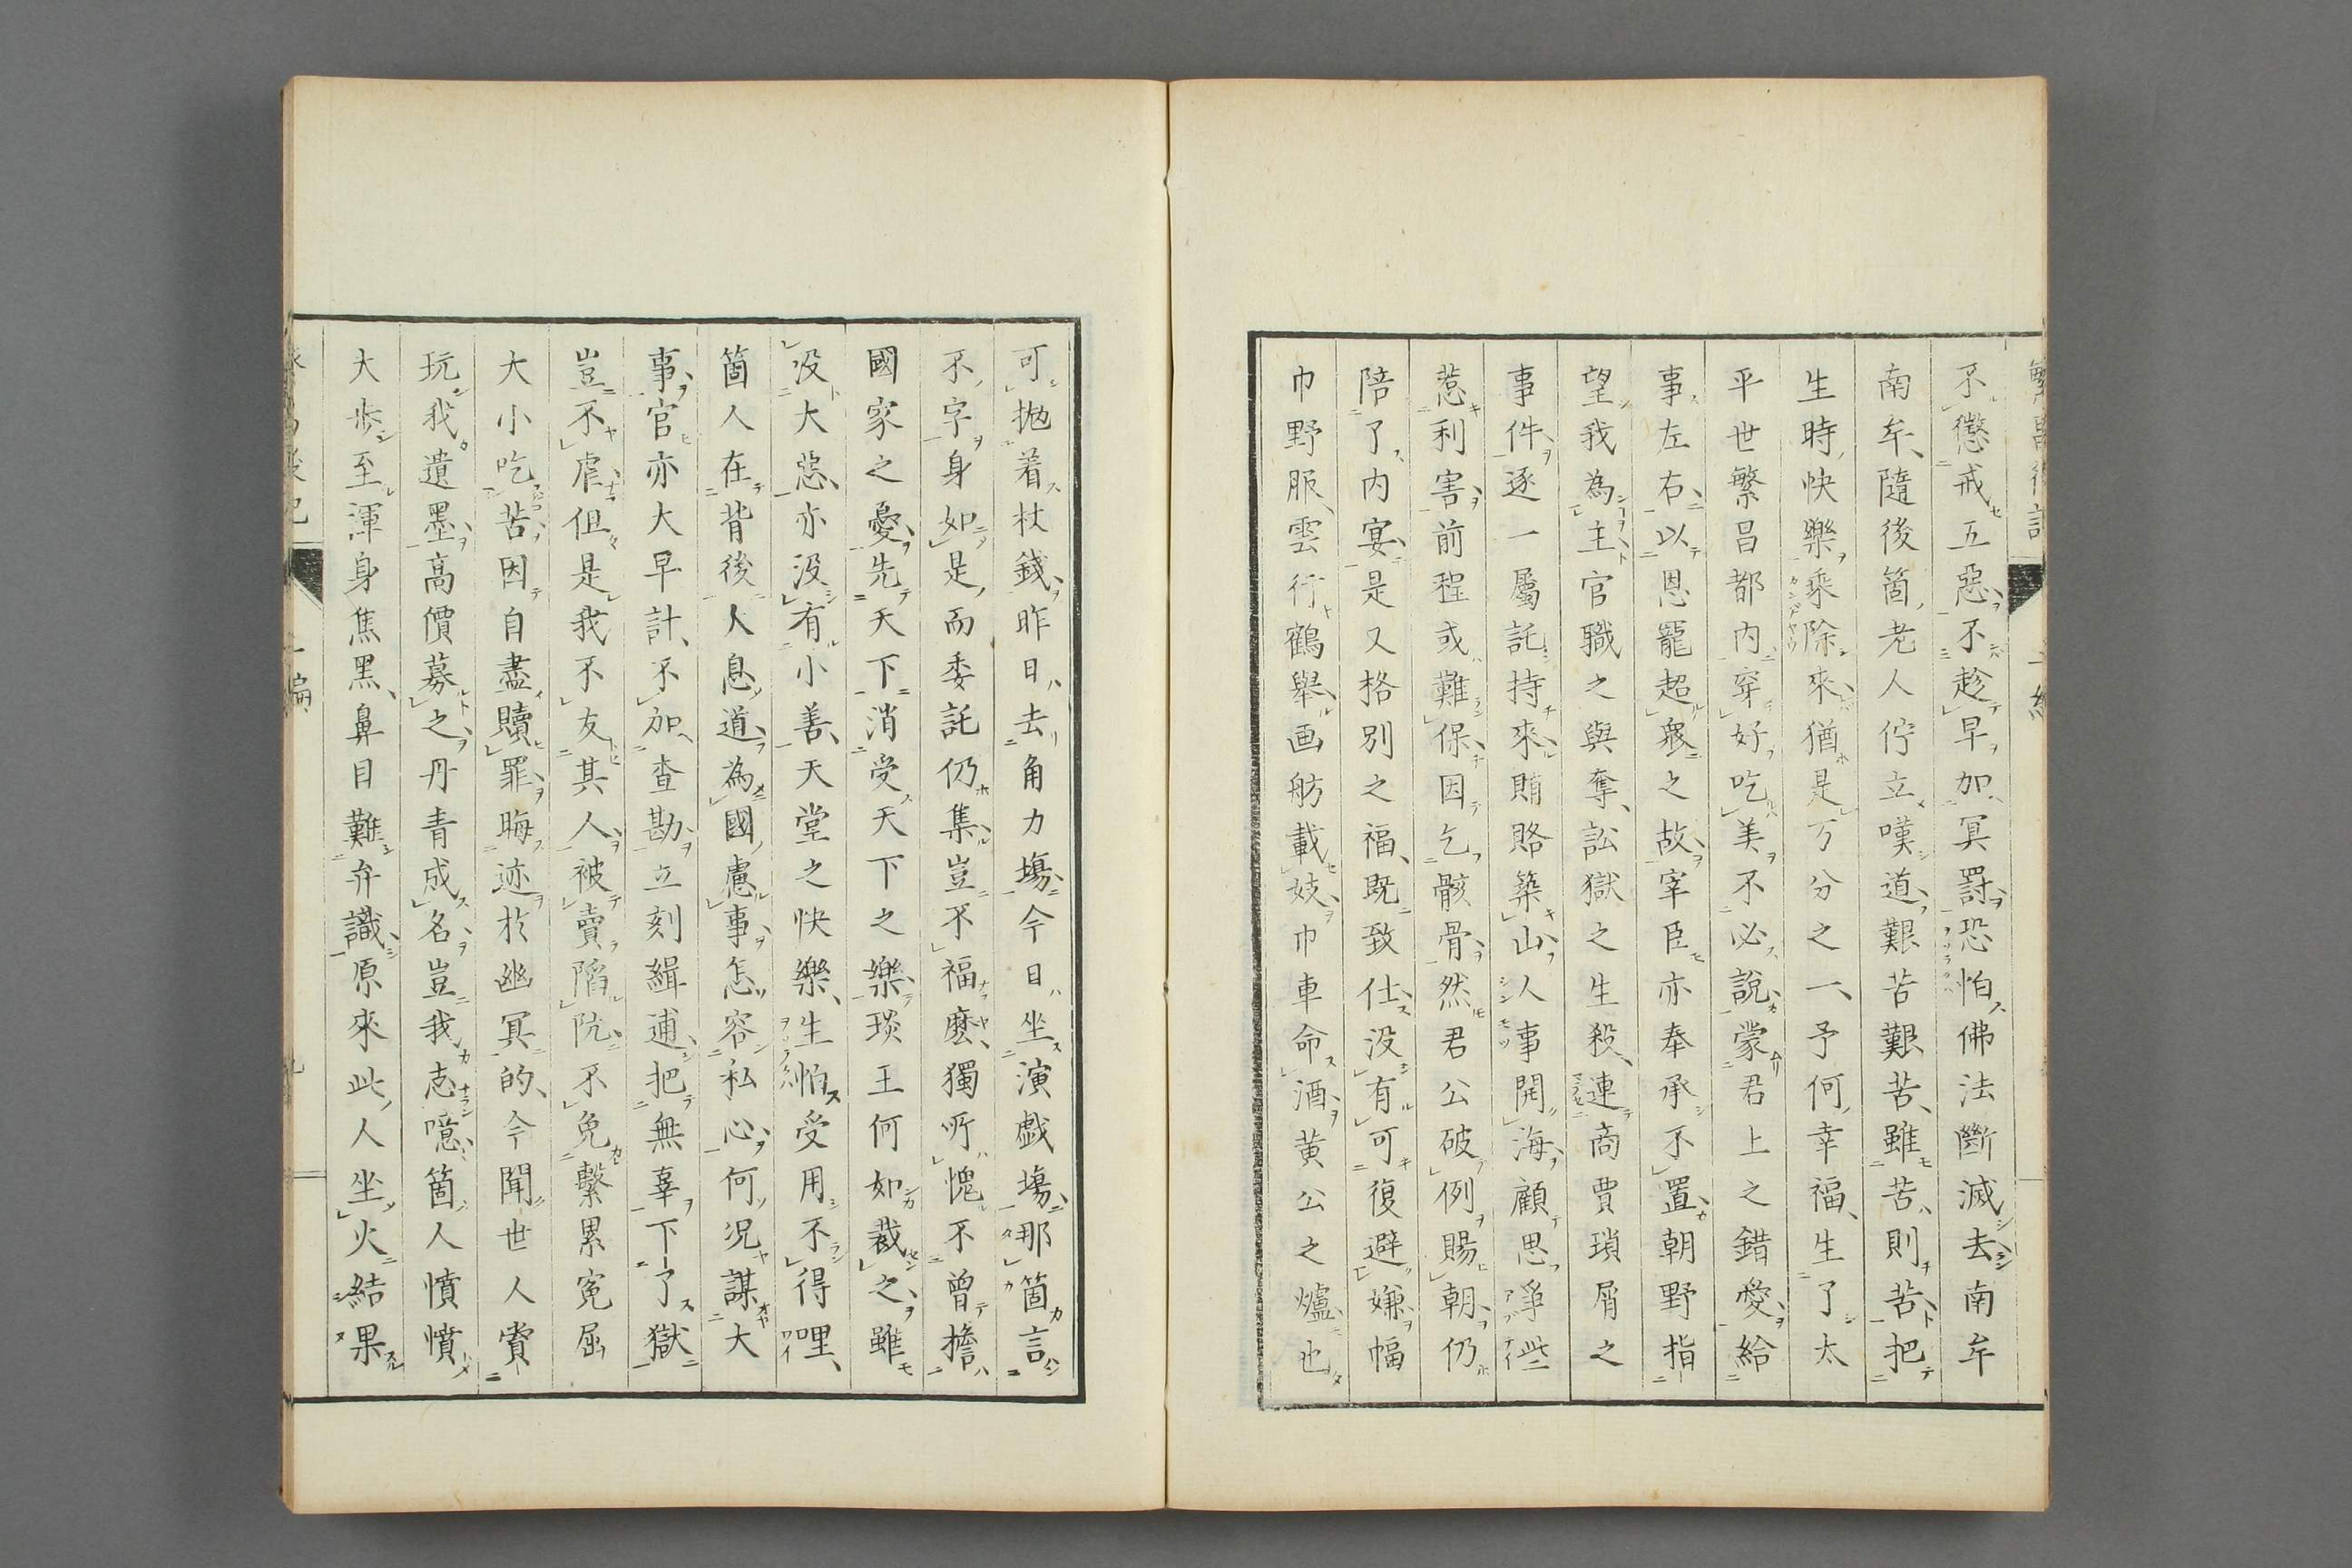 不懲戒五惡不趁早加冥罰恐怕佛法斷滅去南牟
南牟隨後箇老人佇立嘆道艱苦艱苦雖苦則苦把
生時快樂乘除來猶是万分之一予何幸福生了太
平世繁昌都内穿好吃美不必說蒙君上之錯愛給
事左右以恩寵超衆之故宰臣亦奉承不置朝野指
望我為主官職之與奪訟獄之生殺連商賈瑣屑之
事件逐一屬託持來賄賂築山人事開海顧思爭些
惹利害前程或難保因乞骸骨然君公破例賜朝仍
陪了内宴是又格別之福既致仕没有可復避嫌幅
巾野服雲行鶴舉画舫載妓巾車命酒黄公之爐也
可拋着杖錢昨日去角力塲今日坐演戯塲那箇言
不字身如是而委託仍集豈不福麼獨所愧不曾擔
國家之憂先天下消受天下之樂琰王何如裁之雖
没大惡亦没有小善天堂之快樂生怕受用不得哩
箇人在背後人息道為國慮事怎容私心何況謀大
事官亦大早計不加查勘立刻緝逋把無辜下了獄
豈不虐但是我不友其人被賣陷阬不免繫累冤屈
大小吃苦因自盡贖罪晦迹於幽冥的今聞世人賞
玩我遺墨高價募之丹青成名豈我志噫箇人憤憤
大步至渾身焦黑鼻目難弁識原來此人坐火結果